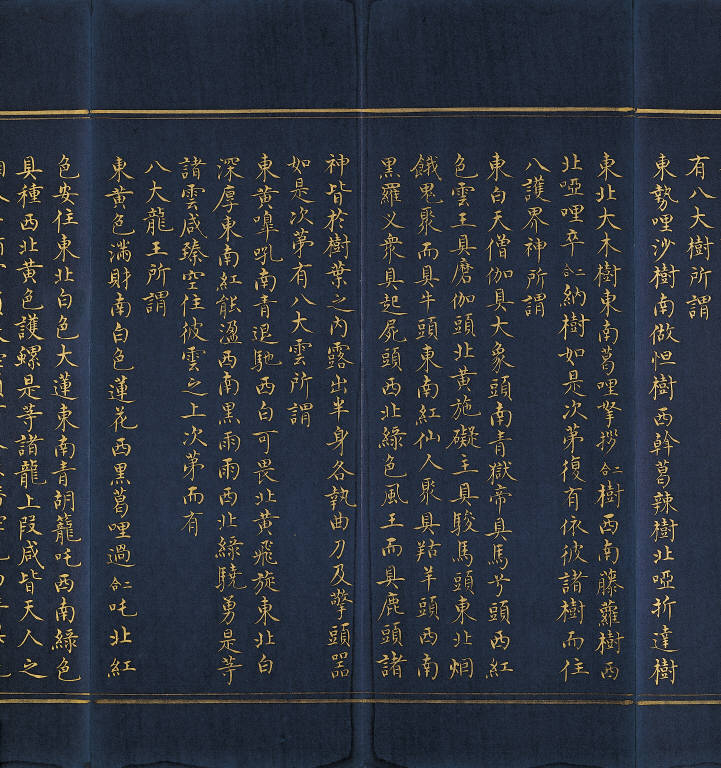 有八大樹所謂
東勢哩沙樹南做怛樹西幹葛辣樹北啞折達樹
東北大木樹東南葛哩拶樹西南藤蘿樹西
北啞哩卒二合納樹如是次第復有依彼諸樹而住
八護界神所謂
東白天僧伽具大象頭南青獄帝具馬兮頭西紅
色雲王具磨伽頭北黃施礙主具駿馬頭東北烟
餓鬼聚而具牛頭東南紅仙人聚具羖羊頭西南
黑羅义衆具起屍頭西北綠色風王而具鹿頭諸
神皆於樹葉之內露出半身各執曲刀及擎頭器
如是次第有八大雲所謂
東黃嘷吼南青退馳西白可畏北黃飛旋東北白
深厚東南紅能溫西南黑雨雨西北綠驍勇是等
諸雲咸臻空住彼雲之上次第而有
八大龍王所謂
東黃色滿財南白色蓮花西黑葛哩過二合吒北紅
色安住東北白色大蓮東南青胡籠吒西南綠色
具種西北黃色護螺是等諸龍上段咸皆天人之